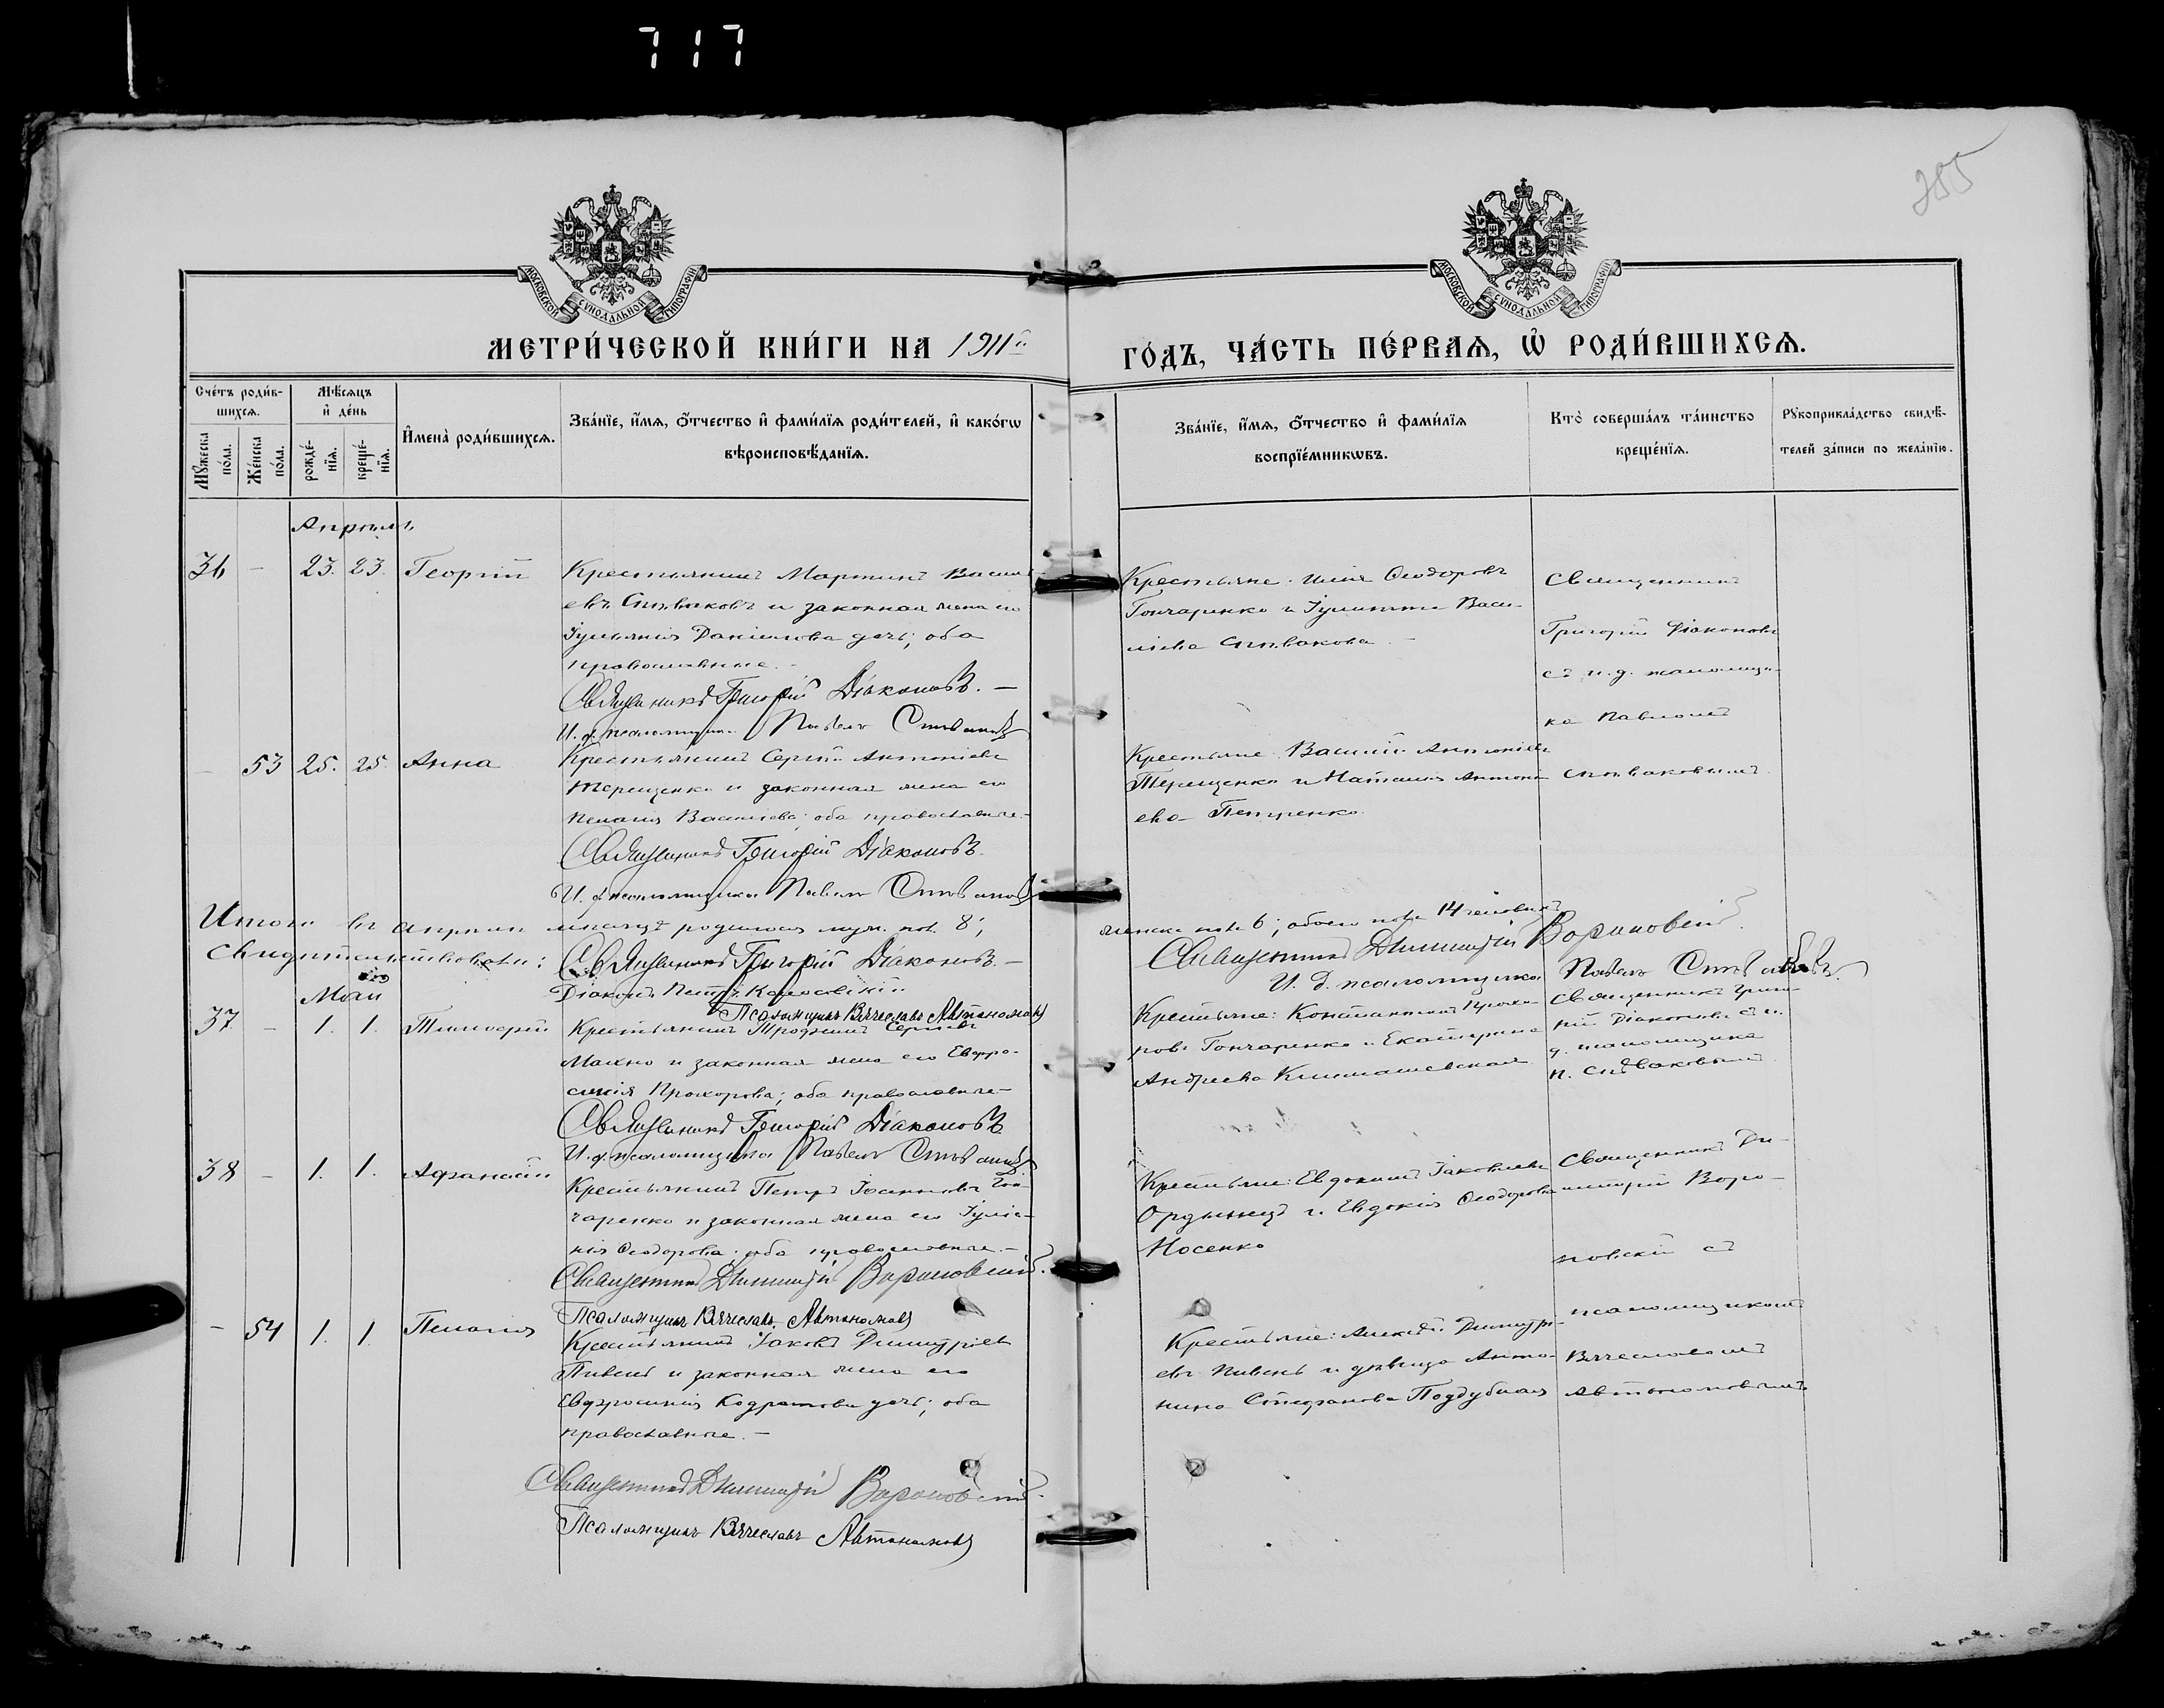 717
255
МОСКОВСКОЙ СѴНОДАЛЬНОЙ ТИПОГРАФІИ
МОСКОВСКОЙ СѴНОДАЛЬНОЙ ТИПОГРАФІИ
МЕТРИ́ЧЕСКОЙ КНИ́ГИ НА 1911й
ГО́ДЪ, ЧА́СТЬ ПЕ́РВАѦ, Ѡ҆ РОДИ́ВШИХСѦ.
Сче́тъ роди́в-
шихсѧ.
Мꙋ́жеска по́ла.
Же́нска по́ла.
Мѣ́сѧцъ
и҆ де́нь
рожде́-
нїѧ.
креще́-
нїѧ.
И҆мена̀ роди́вшихсѧ.
Зва́нїе, и҆́мѧ, ѻ҆́тчество и҆ фами́лїѧ роди́телей, и҆ како́гѡ
вѣроисповѣ́данїѧ.
Зва́нїе, и҆́мѧ, ѻ҆́тчество и҆ фами́лїѧ
воспрїе́мникѡвъ.
Кто̀ соверша́лъ та́инство
креще́нїѧ.
Рꙋкоприкла́дство свидѣ́-
телей за́писи по жела́нїю.
Апрѣль
36 - 23. 23. Георгій
Крестьянинъ Мартинъ Васил-
евъ Спѣваковъ и законная жена его
Іуліанія Даніилова дочь; оба
православные.-
Священникъ Григорій Діаконовъ.-
И. д. псаломщика Павелъ Спѣваковъ
Крестьяне: Илія Ѳеодоровъ
Гончаренко и Іулитта Васи-
ліева Спѣвакова -
Священникъ
Григорій Діаконовъ
съ и. д. псаломщи-
ка Павломъ
Спѣваковымъ
- 53 25. 25. Анна
Крестьянинъ Сергій Антоніевъ
Терещенко и законная жена его
Пелагія Васильева; оба православные.-
Священникъ Григорій Діаконовъ.
И. д. псаломщика Павелъ Спѣваковъ
Крестьяне: Василій Антоніевъ
Терещенко и Наталія Антоні-
ева Петренко.
Итого въ апрѣлѣ мѣсяцѣ родилось муж. пол. 8;
женска пола 6; обоего пола 14 человѣкъ
Свидѣтельствовали: Священникъ Григорій Діаконовъ.-
Священникъ Димитрій Вороновскій.
Діаконъ Петръ
И. д. псаломщика Павелъ Спѣваковъ.
Псаломщикъ Вячеславъ Автономовъ
Май
37 - 1. 1. Тимоѳей
Крестьянинъ Трофимъ Сергіевъ
Махно и законная жена его Евфро-
синія Прохорова; оба православные-
Священникъ Григорій Діаконовъ
И. д. псаломщика Павелъ Спѣваковъ
Крестьяне: Константинъ Прохо-
ровъ Гончаренко и Екатерина
Андреева Климашевская
Священникъ Григо-
рій Діаконовъ съ и.
д. псаломщика
П. Спѣваковымъ
38 - 1. 1. Аѳанасій
Крестьянинъ Петръ Іоанновъ Гон-
чаренко и законная жена его Іуліа-
нія Ѳеодорова; оба православные.-
Священникъ Димитрій Вороновскій.
Псаломщикъ Вячеславъ Автономовъ
Крестьяне: Евдокимъ Іаковлевъ
Ордынецъ и Евдокія Ѳеодорова
Носенко
Священникъ Ди-
митрій Воро-
новскій съ
псаломщикомъ
Вячеславомъ
Автономовымъ
- 54 1. 1. Пелагія
Крестьянинъ Іаковъ Димитріевъ
Пивень и законная жена его
Евфросинія Кодратова дочь; оба
православные.-
Священникъ Димитрій Вороновскій.
Псаломщикъ Вячеславъ Автономовъ
Крестьяне: Алексѣй Димитрі-
евъ Пивень и дѣвица Анто-
нина Стефанова Поддубная